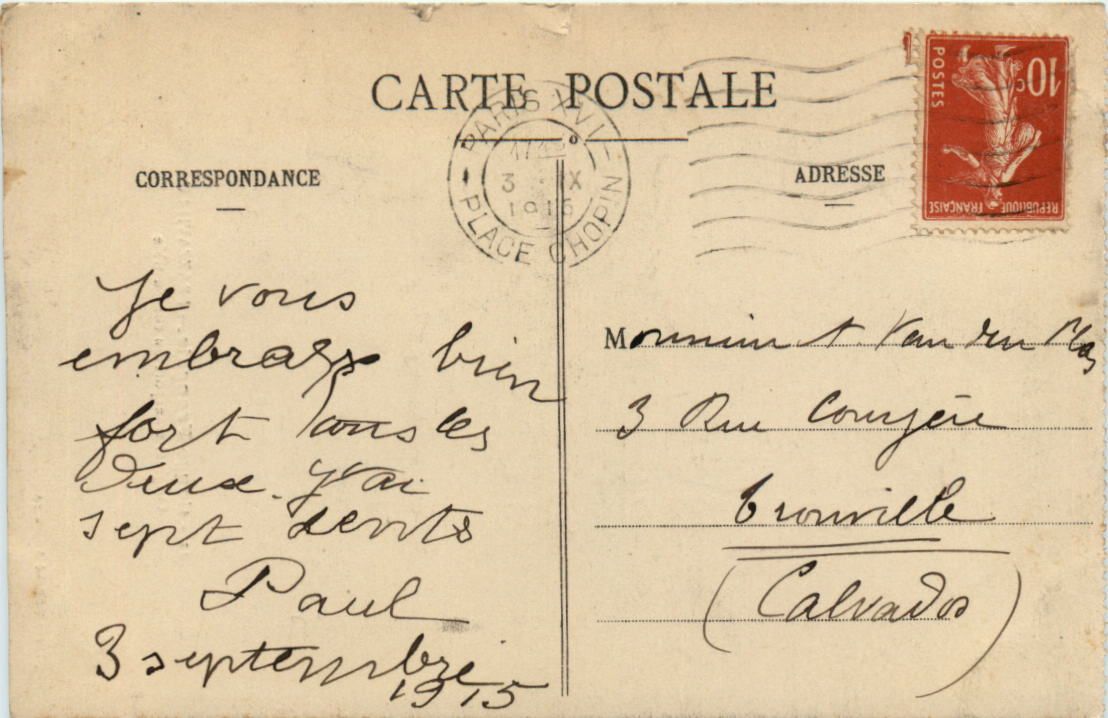 CARTE POSTALE
PARIS XVI
1715
3 IX
1915
PLACE CHOPIN
CORRESPONDANCE
ADRESSE
10c
POSTES
REPUBLIQUE FRANÇAISE
Je vous
embrasse bien
fort tous les
deux. J'ai
sept dents
Paul
3 septembre
1915
Monsieur A. Van den
3 Rue
Trouville
(Calvados)